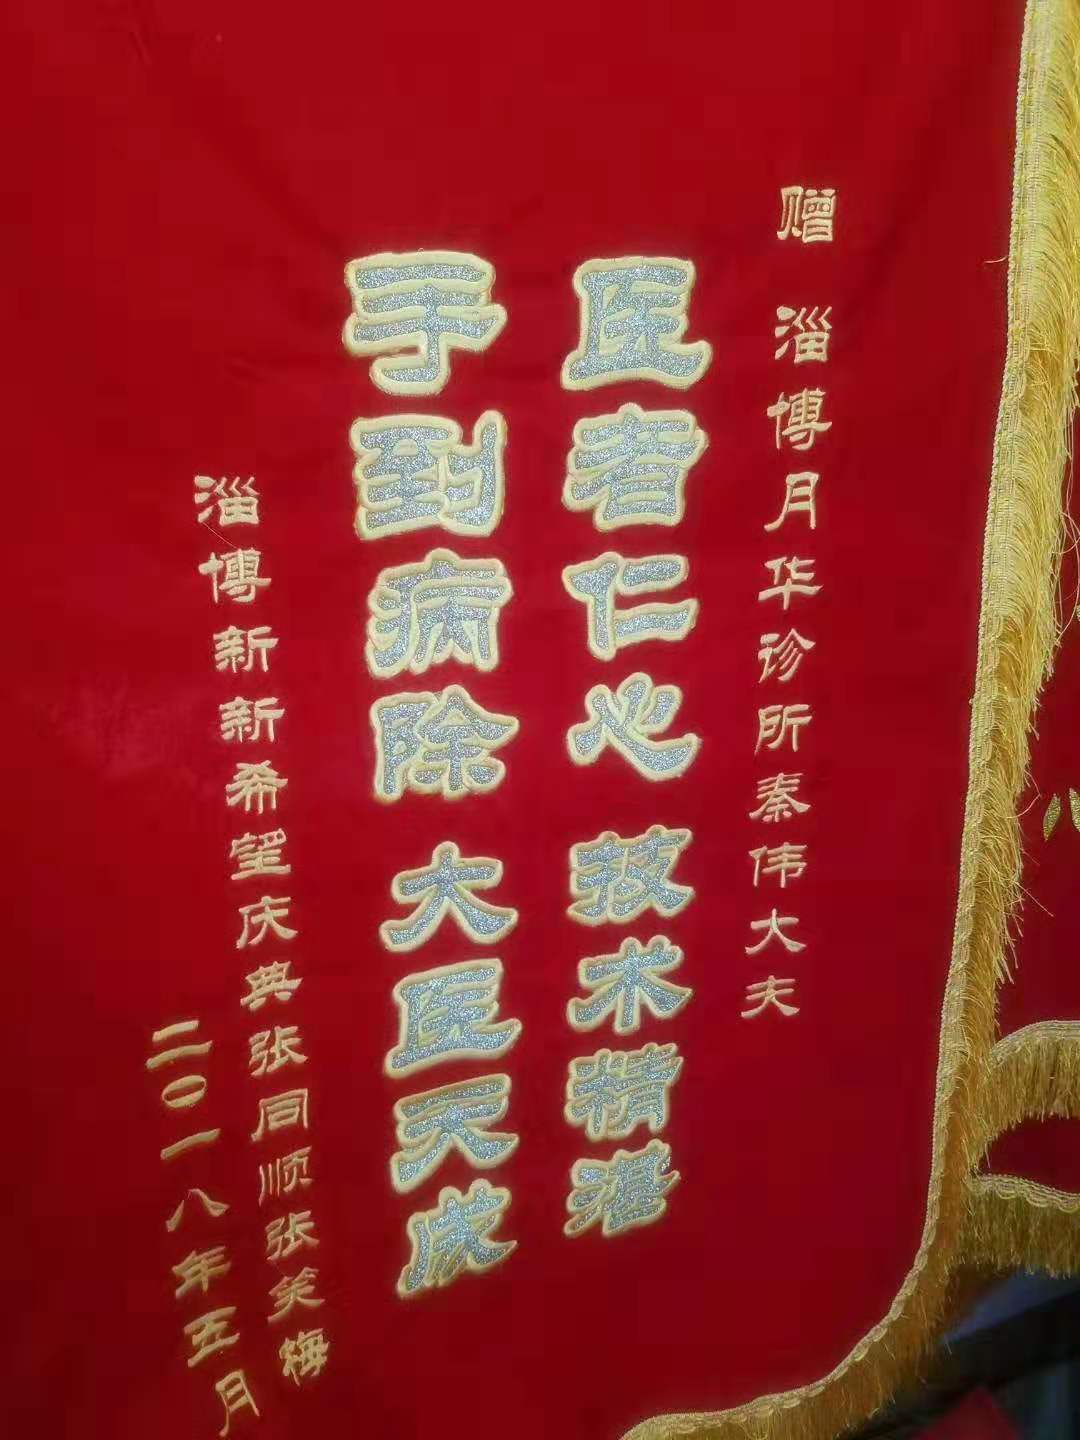 赠 淄博月华诊所秦伟大夫
医者仁心 技术精湛
手到病除 大医天成
淄博新新希望庆典张同顺张笑梅
二〇一八年五月